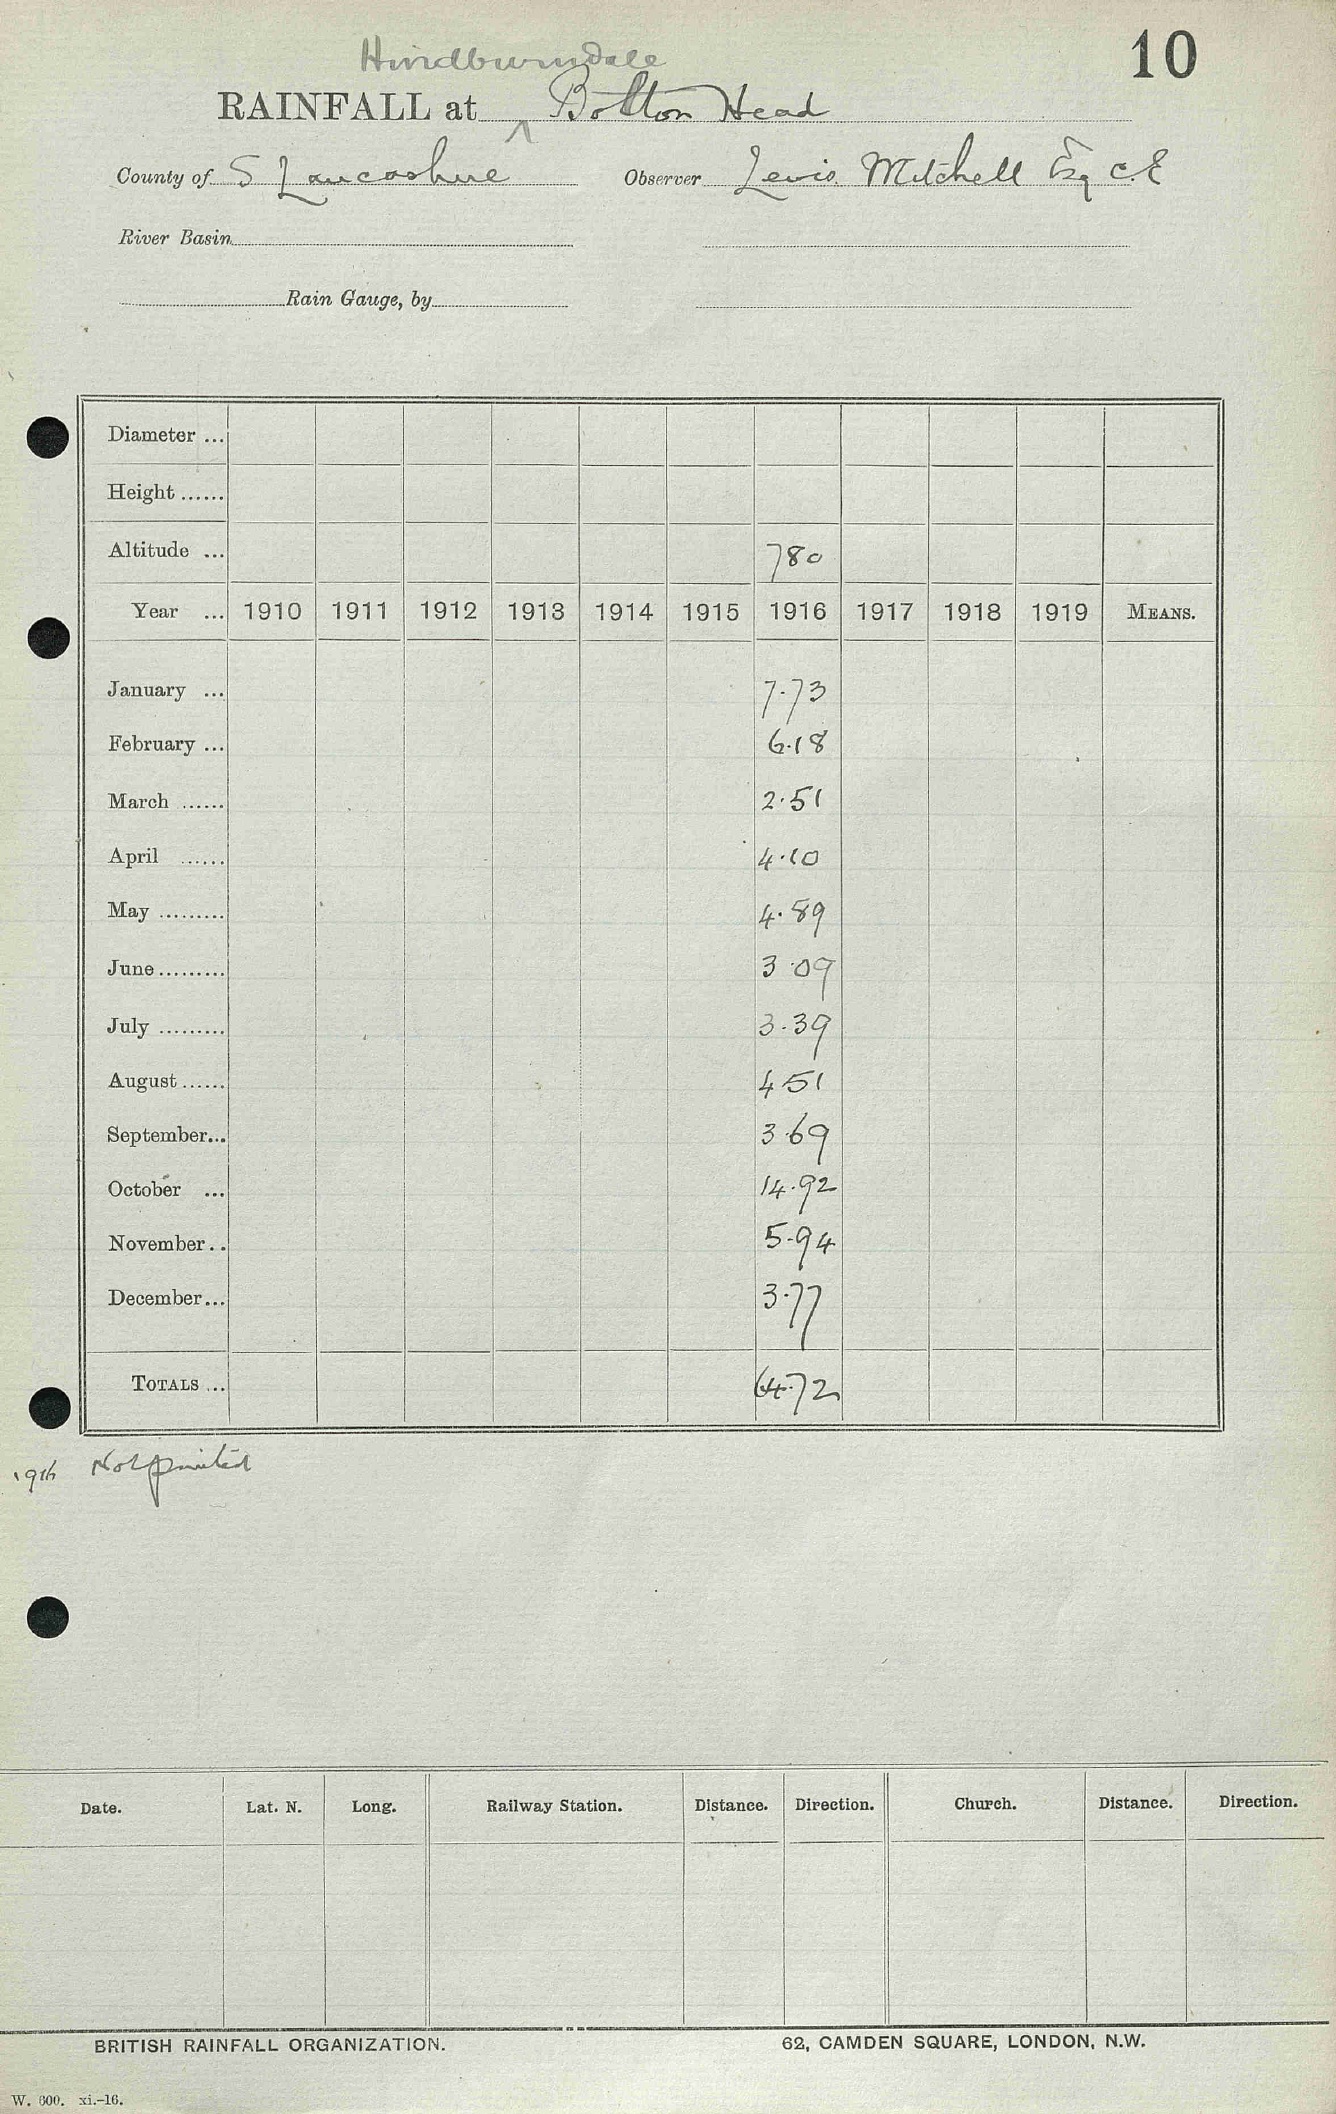 10
Hindburndale
RAINFALL at ^ Botton Head
County of S Lancashire Observer Lewis Mitchell Esq C.E
River Basin
Rain Gauge, by
Diameter ...
Height ......
Altitude ... 780
Year ... 1910 1911 1912 1913 1914 1915 1916 1917 1918 1919 MEANS.
January ... 7.73
February ... 6.18
March ...... 2.51
April ...... 4.10
May ......... 4.89
June ......... 3.09
July ......... 3.39
August ...... 4 51
September... 3.69
October ... 14.92
November .. 5.94
December ... 3.77
TOTALS ... 64.72
1916 Not printed
Date. Lat. N. Long. Railway Station. Distance. Direction. Church. Distance. Direction.
BRITISH RAINFALL ORGANIZATION. 62, CAMDEN SQUARE, LONDON, N.W.
W. 600. xi.-16.